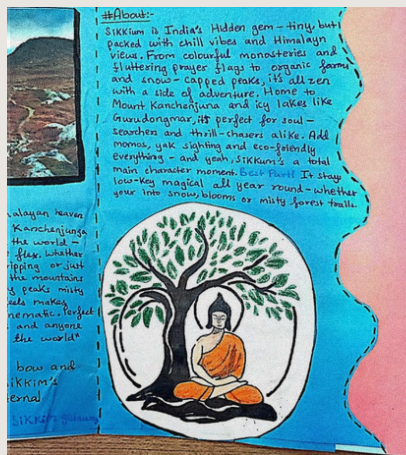 #About:-
Sikkium is India's Hidden gem - tiny, but
packed with chill vibes and Himalayn
views. From colourful monasteries and
fluttering prayer flags to organic farms
and snow-capped peaks, its all zen
with a side of adventure. Home to
Mount Kanchenjuna and icy lakes like
Gurudongmar, it's perfect for soul-
searchers and thrill-chasers alike. Add
momos, yak sighting and eco-friendly
everything - and yeah, Sikkum's a total
main character moment. Best Part! It stays
low-key magical all year round - whether
your into snow, blooms or misty forest trails.
alayan heaven
Kanchenjunga
the world -
flex. Whether
ripping or just
the mountains
peaks misty
eels makes
nematic. Perfect
and anyone
the world"
bow and
Sikkim's
ternal
Sikkim